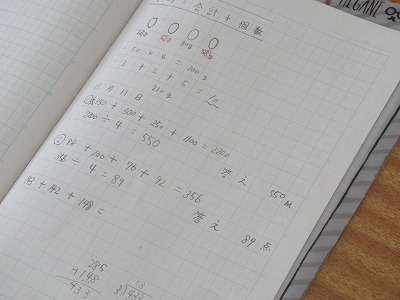 MEGANE
合計 ÷ 個数
50 × 4 = 200g
3 + 2 + 5 = 10
210g
11月11日
① 350 + 500 + 250 + 1100 = 2200
2200 ÷ 4 = 550 答え 550m
② 88 + 100 + 76 + 92 = 356
356 ÷ 4 = 89 答え 89点
+ 142 + 148 =
285
+148
433